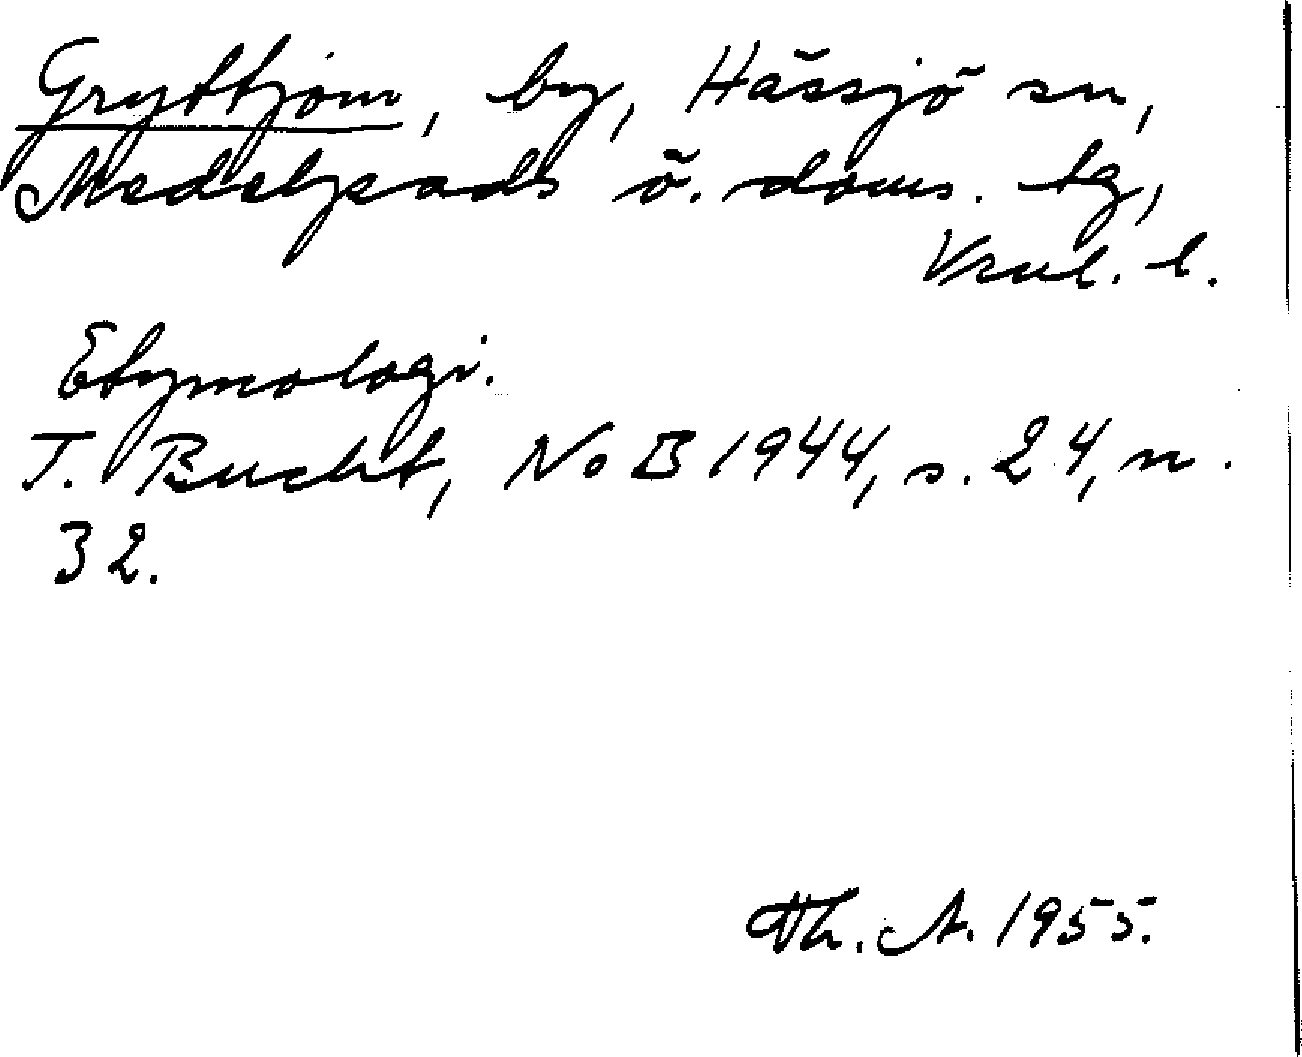 Gryttjom, by, Hässjö sn,
Medelpads ö. doms. tg,
Vrnl. l.
Etymologi.
T. Bucht, NoB 1944, s. 24, n.
32.
Th. A. 1955.